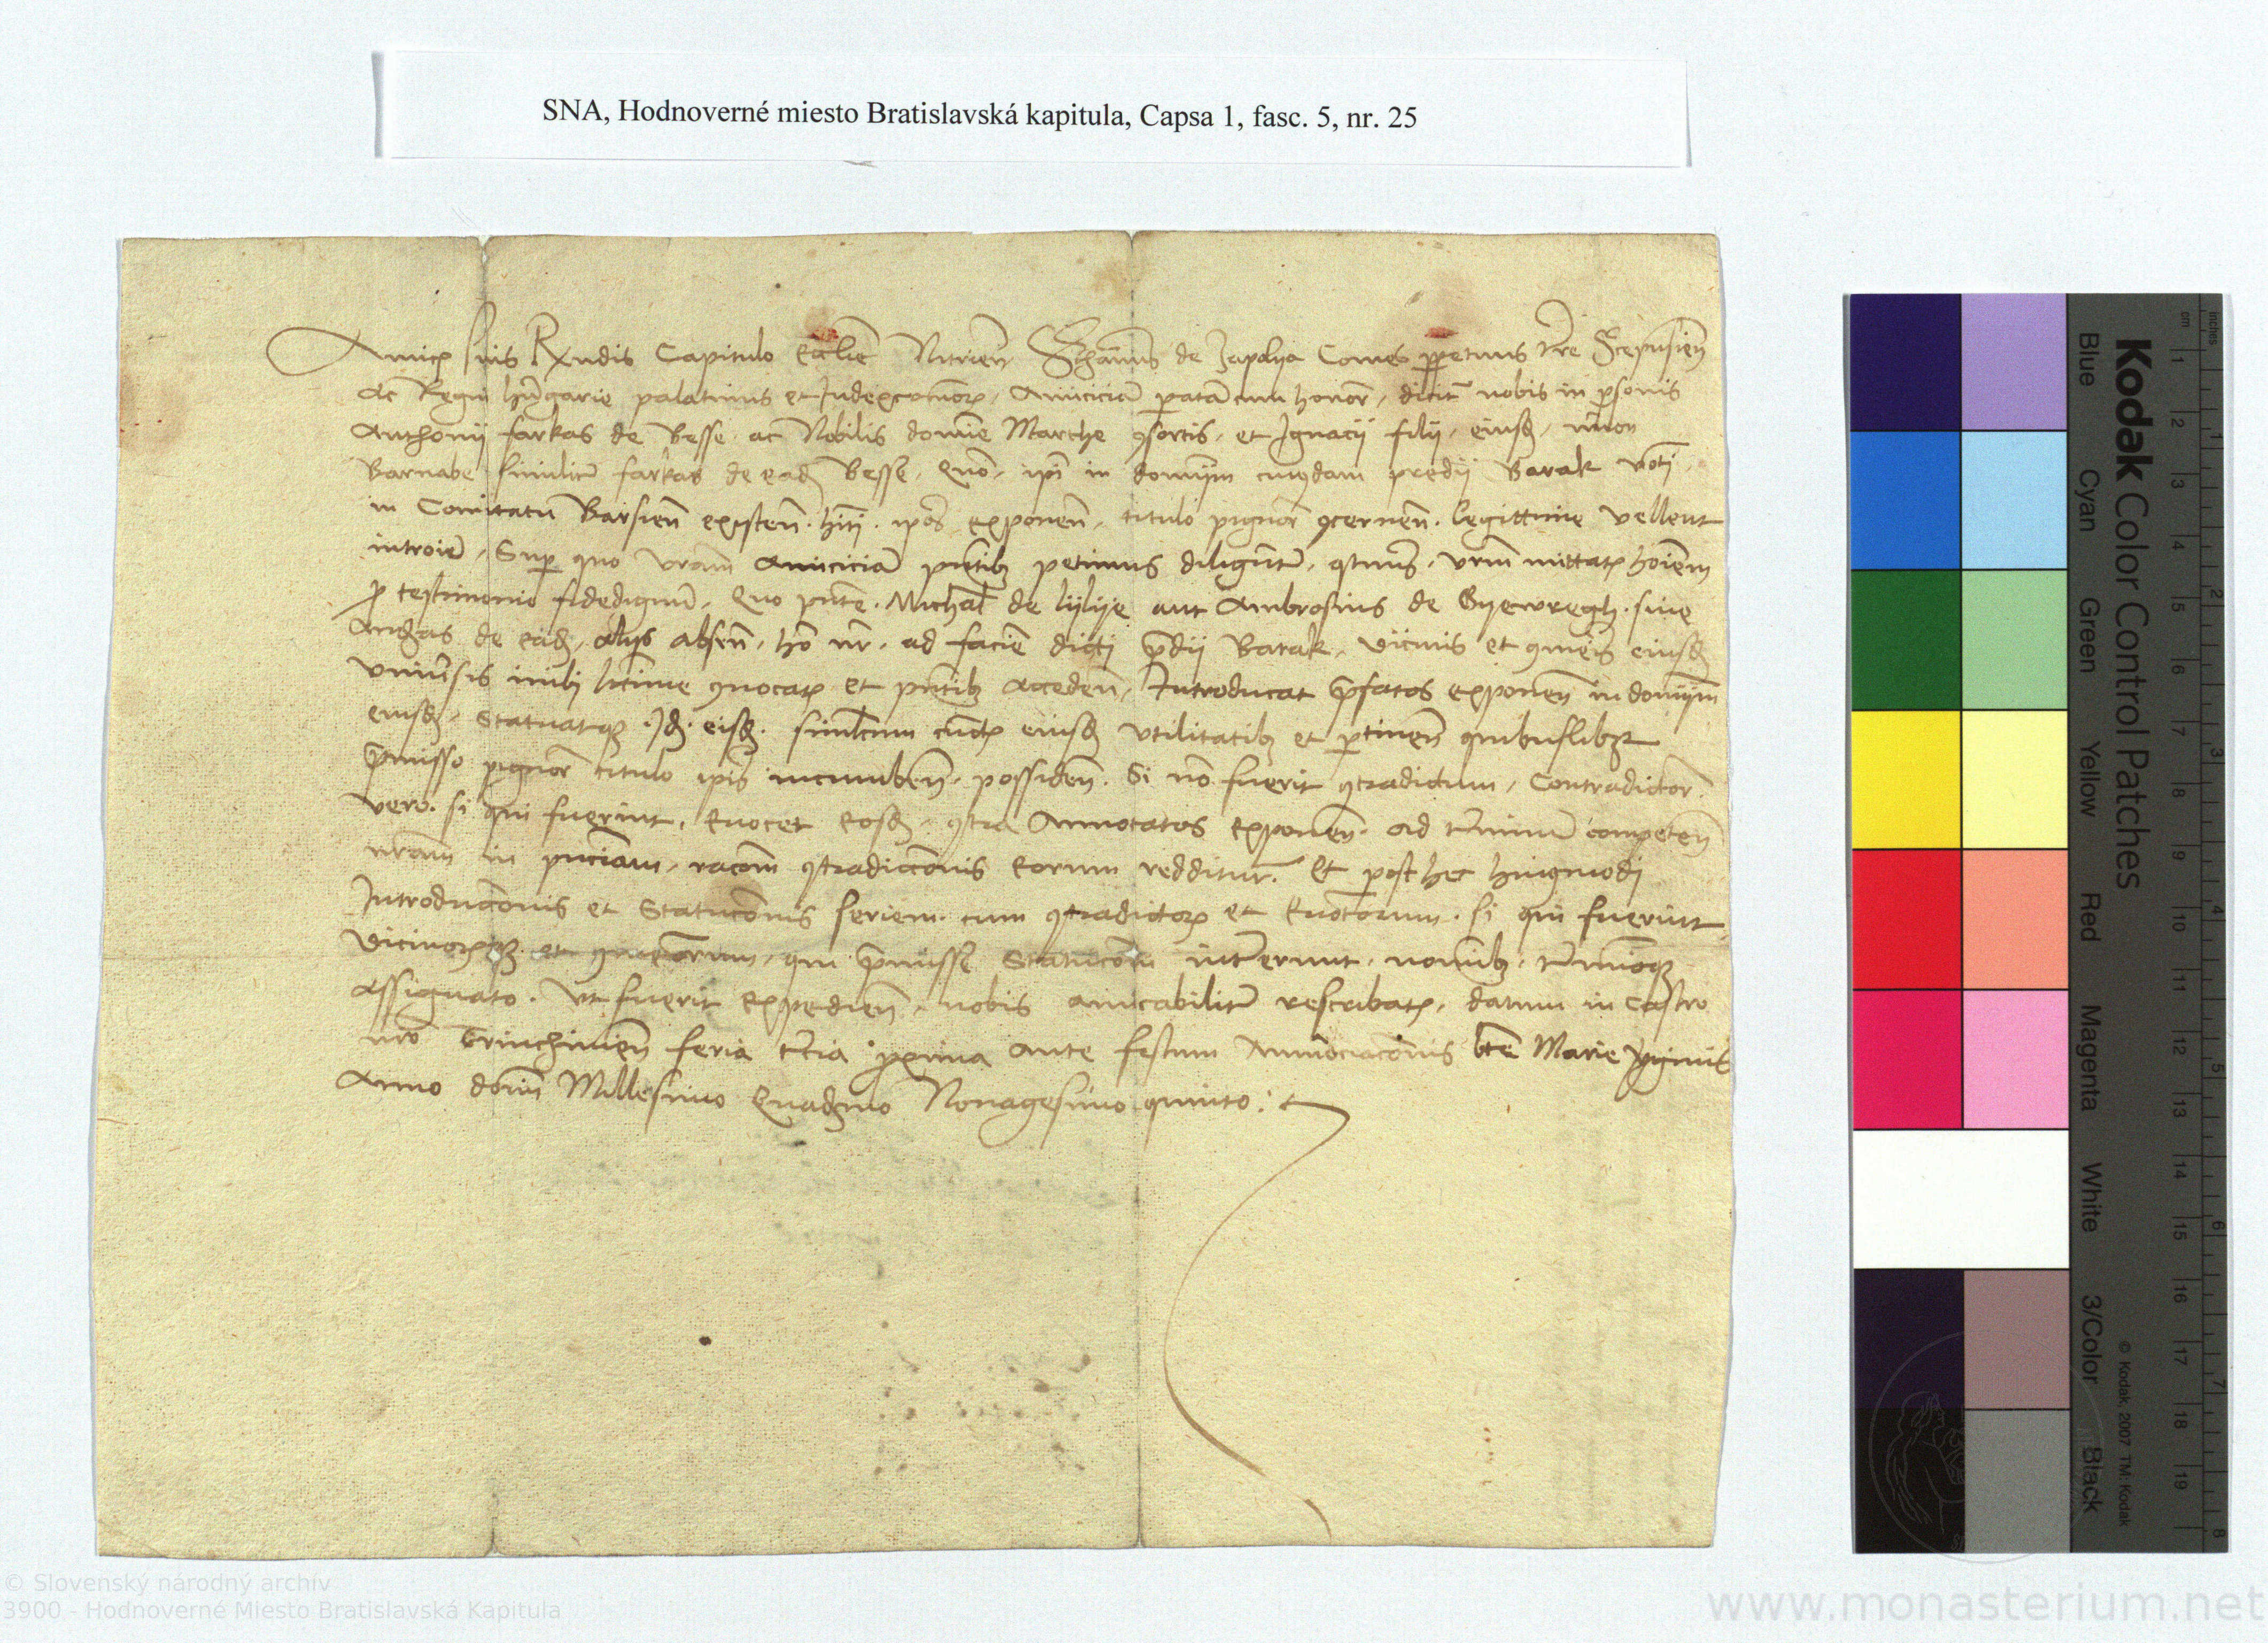 SNA, Hodnoverné miesto Bratislavská kapitula, Capsa 1, fasc. 5, nr. 25
Amicis suis Rndis Capitulo Ecclie Nitrien Stephanus de Zapolya Comes perpetuus terre Scepusien
ac Regni hungarie palatinus et Judex comanor, Amiciciam paratam cum honore, dicitur nobis in personis
Anthonij farkas de Besse ac Nobilis domine Marthe consortis, et Ignacij filij, eiusdem, necnon
Barnabe similiter farkas de eadem Besse, Quomodo, ipsi in dominium cuiusdam predij Barak vocati
in Comitatu Barsien existen. habiti. ipsos exponen, titulo pignoris concernen. legittime vellent
introire, Super quo vestram amiciciam presentibus petimus diligenter, quatenus, vestrum mittatis hominem
pro testimonio fidedignum, Quo presente. Michael de lylye aut Ambrosius de Gyewregh. sive
Andreas de eadem, alijs absen, homo noster, ad faciem dicti predij Barak, vicinis et commetaneis eiusdem
universis inibi legitime convocatis et presentibus acceden, Introducat prefatos exponen in dominium
eiusdem, Statuatque. Idem. eisdem. simulcum cunctis eiusdem utilitatibus et pertinen quibuslibet
premisso pignoris titulo ipsis incumben, possiden. Si non fuerit contradictum, Contradictores
vero. si qui fuerint, Evocet eosdem, contra Annotatos exponen. ad terminum competen
nostram in presenciam, racionem contradiccionis eorum reddituros. Et post hec huiusmodi
Introduccionis et Statucionis seriem. cum contradictorum et evocatorum. si qui fuerint,
vicinorumque. et commetaneorum, qui premisse Statucioni intererunt, nominibus, terminoque
assignato. Ut fuerit expedien, nobis amicabiliter rescribatis, datum in Castro
nostro Trinchinien feria tercia proxima ante festum Annunciacionis beate Marie virginis
Anno domini Millesimo Quadringentesimo Nonagesimo quinto:
Kodak Color Control Patches
Blue
Cyan
Green
Yellow
Red
Magenta
White
3/Color
Black
© Kodak, 2007 TM: Kodak
cm 1 2 3 4 5 6 7 8 9 10 11 12 13 14 15 16 17 18 19
inches 1 2 3 4 5 6 7 8
© Slovenský národný archív
3900 - Hodnoverné Miesto Bratislavská Kapitula
www.monasterium.net